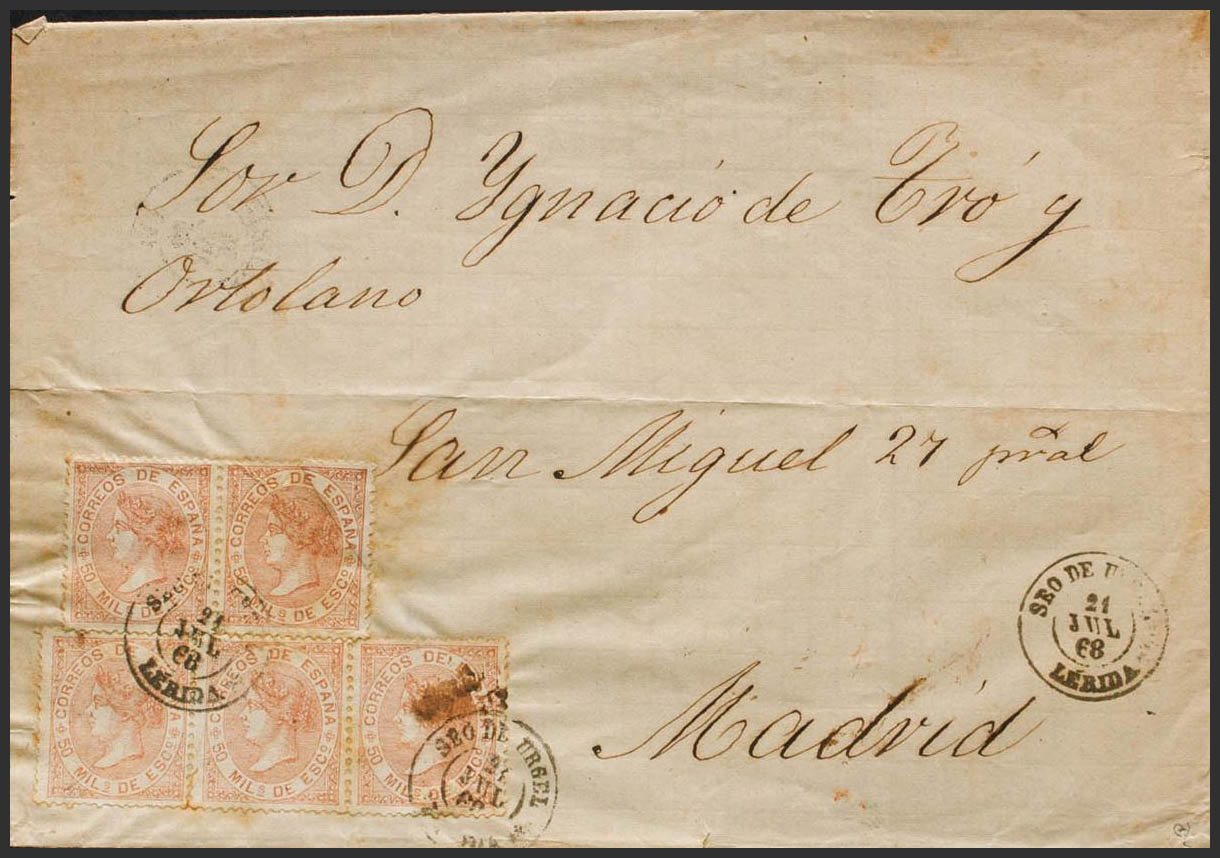 Sor. D. Ygnacio de Tró y
Ortolano
San Miguel 27 pral
Madrid
CORREOS DE ESPAÑA
50 MIL.s DE ESCo.
CORREOS DE ESPAÑA
50 MIL.s DE ESCo.
CORREOS DE
50 MIL.s DE ESCo.
CORREOS DE ESPAÑA
50 MIL.s DE ESCo.
CORREOS DE
50 MIL.s DE
21
JUL
68
LERIDA
SEO DE URGEL
21
JUL
SEO DE
21
JUL
68
LERIDA